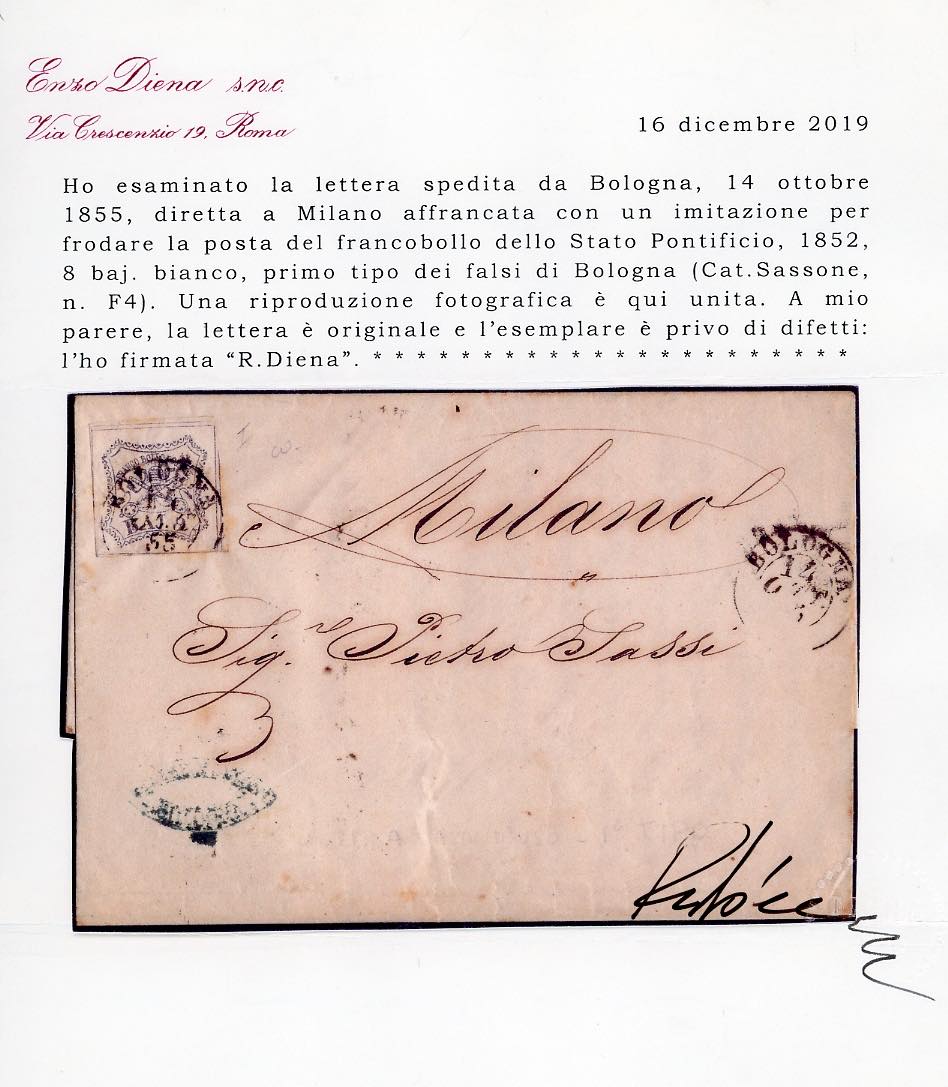 Enzo Diena s.n.c.
Via Crescenzio 19, Roma
16 dicembre 2019
Ho esaminato la lettera spedita da Bologna, 14 ottobre
1855, diretta a Milano affrancata con un imitazione per
frodare la posta del francobollo dello Stato Pontificio, 1852,
8 baj. bianco, primo tipo dei falsi di Bologna (Cat.Sassone,
n. F4). Una riproduzione fotografica è qui unita. A mio
parere, la lettera è originale e l'esemplare è privo di difetti:
l'ho firmata “R.Diena”. * * * * * * * * * * * * * * * * * * * * * *
BOLOGNA
55
Milano
BOLOGNA
14
Sig.re Pietro Sassi
3